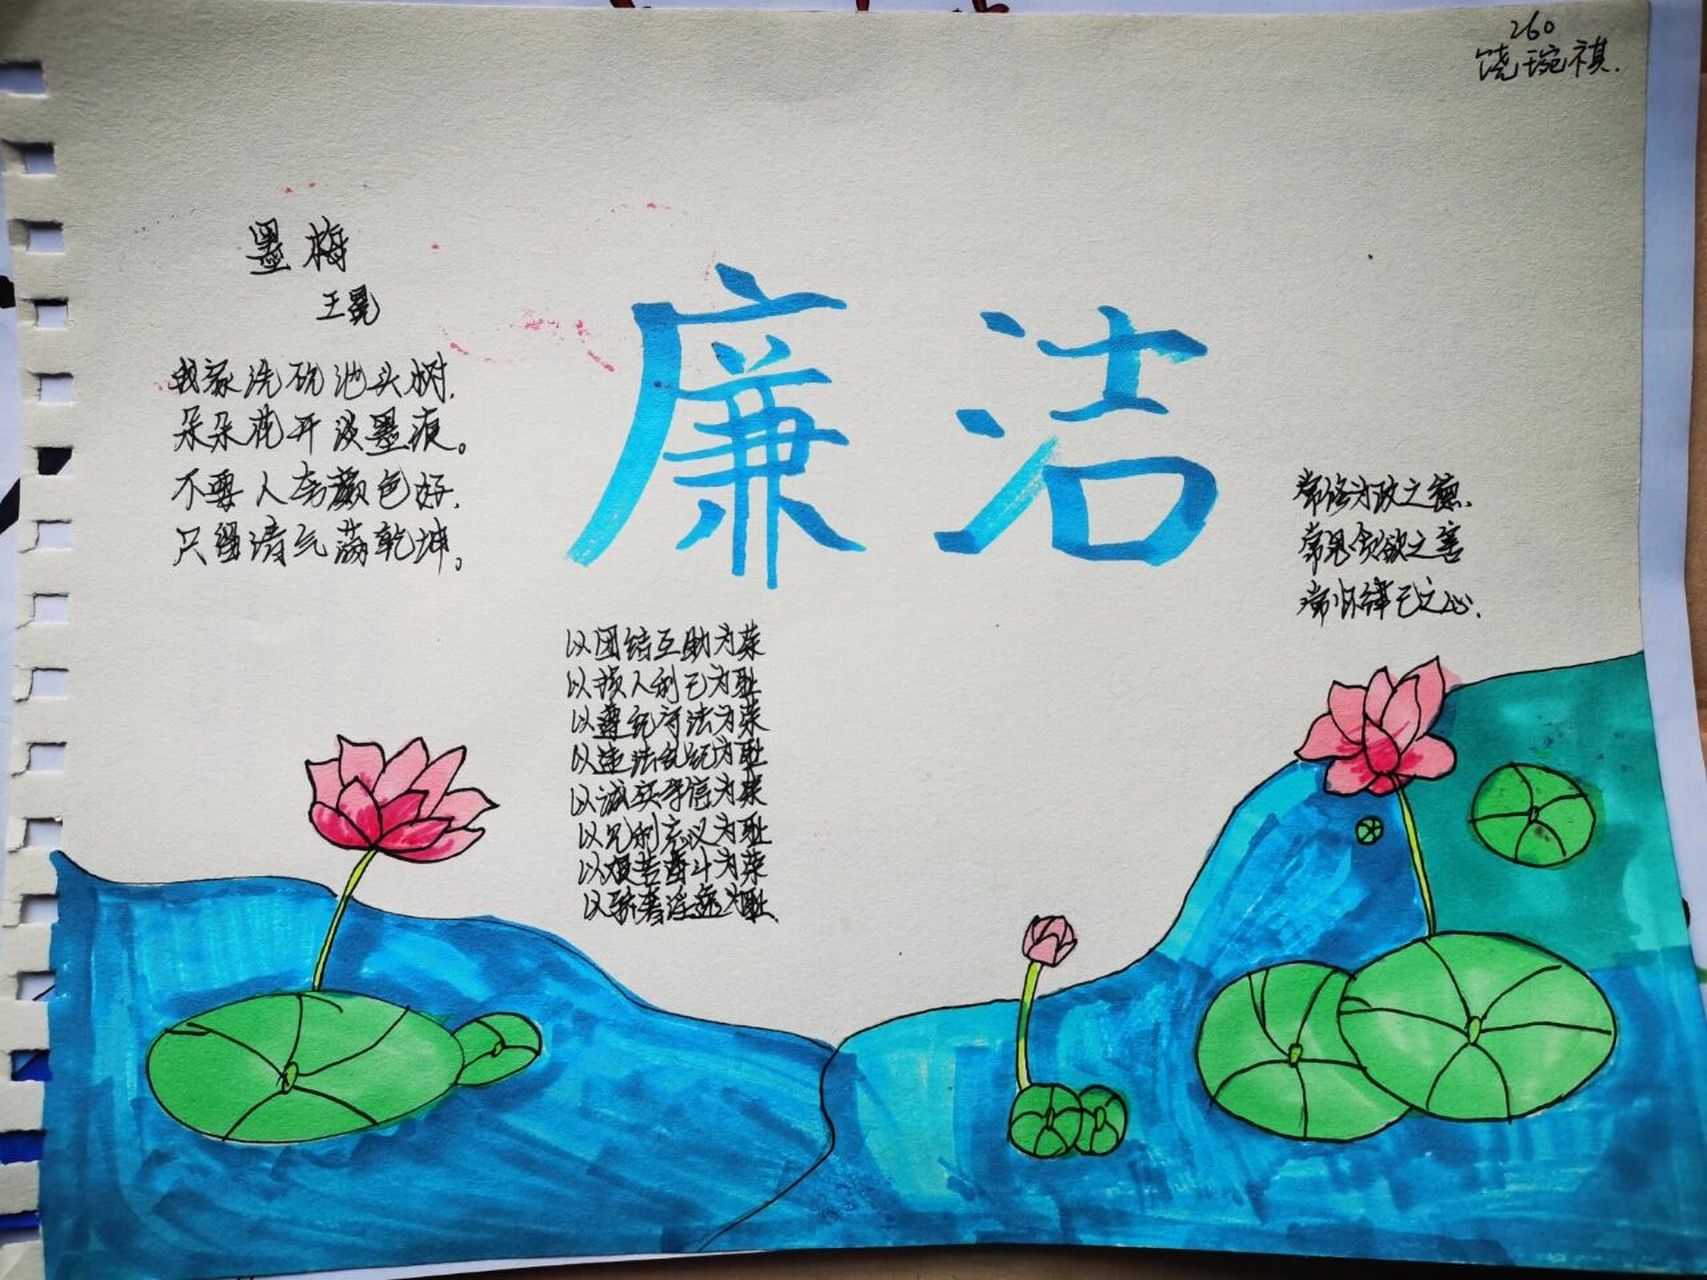 260
饶琬祺.
墨梅
王冕
我家洗砚池头树,
朵朵花开淡墨痕。
不要人夸颜色好,
只留清气满乾坤。
廉洁
常修为政之德,
常思贪欲之害
常怀律己之心.
以团结互助为荣
以损人利己为耻
以遵纪守法为荣
以违法乱纪为耻
以诚实守信为荣
以见利忘义为耻
以艰苦奋斗为荣
以骄奢淫逸为耻.